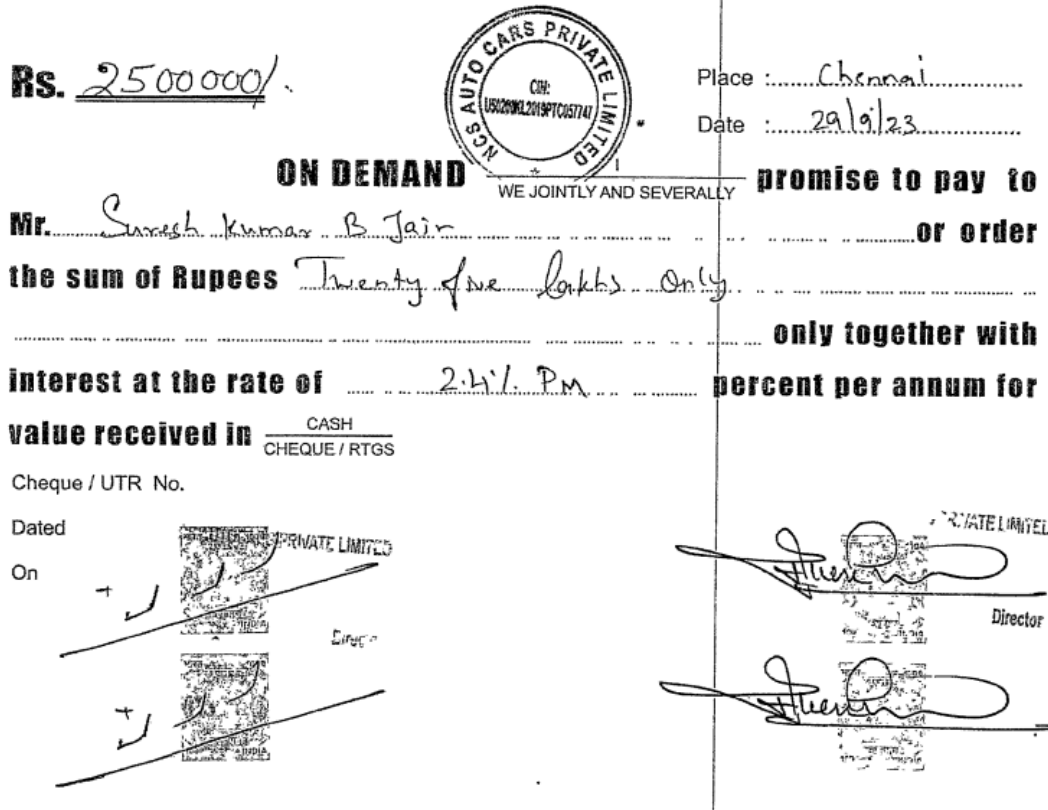 Rs. 2500000/.
NCS AUTO CARS PRIVATE LIMITED
CIN:
Place : Chennai
Date : 29/9/23
ON DEMAND WE JOINTLY AND SEVERALLY promise to pay to
Mr. Suresh Kumar B Jain or order
the sum of Rupees Twenty five lakhs Only
only together with
interest at the rate of 2.4% PM percent per annum for
value received in CASH
CHEQUE / RTGS
Cheque / UTR No.
Dated
PRIVATE LIMITED
PRIVATE LIMITED
On
Director
INDIA
INDIA